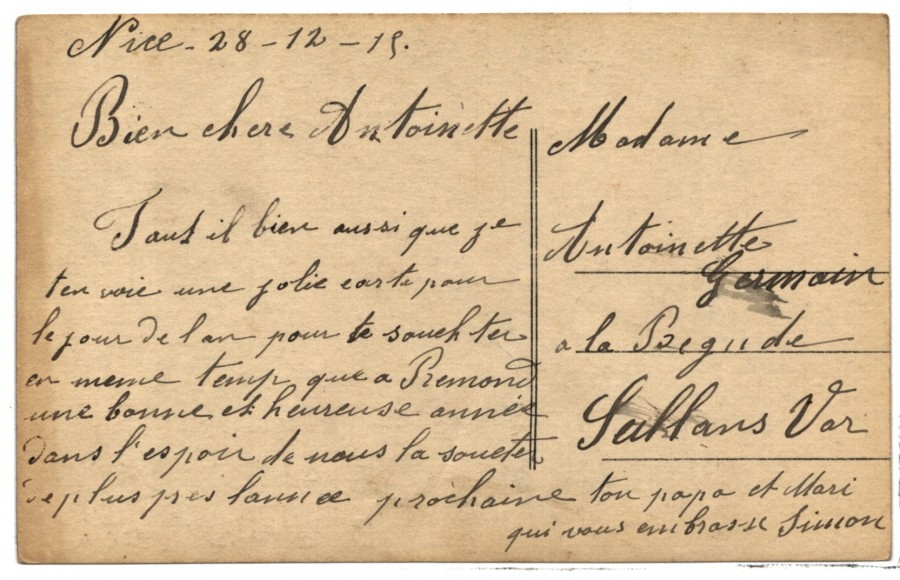 Nice - 28 - 12 - 15.
Bien chere Antoinette
Faut il bien aussi que je
ten voie une jolie carte pour
le jour de l an pour te souehter
en meme temp que a Remond
une bonne et heureuse année
dans l'espoir de nous la soueter
de plus pres lannee prochaine ton papa et Mari
qui vous embrasse Simon
Madame
Antoinette
Germain
a la Begude
Sallans Var